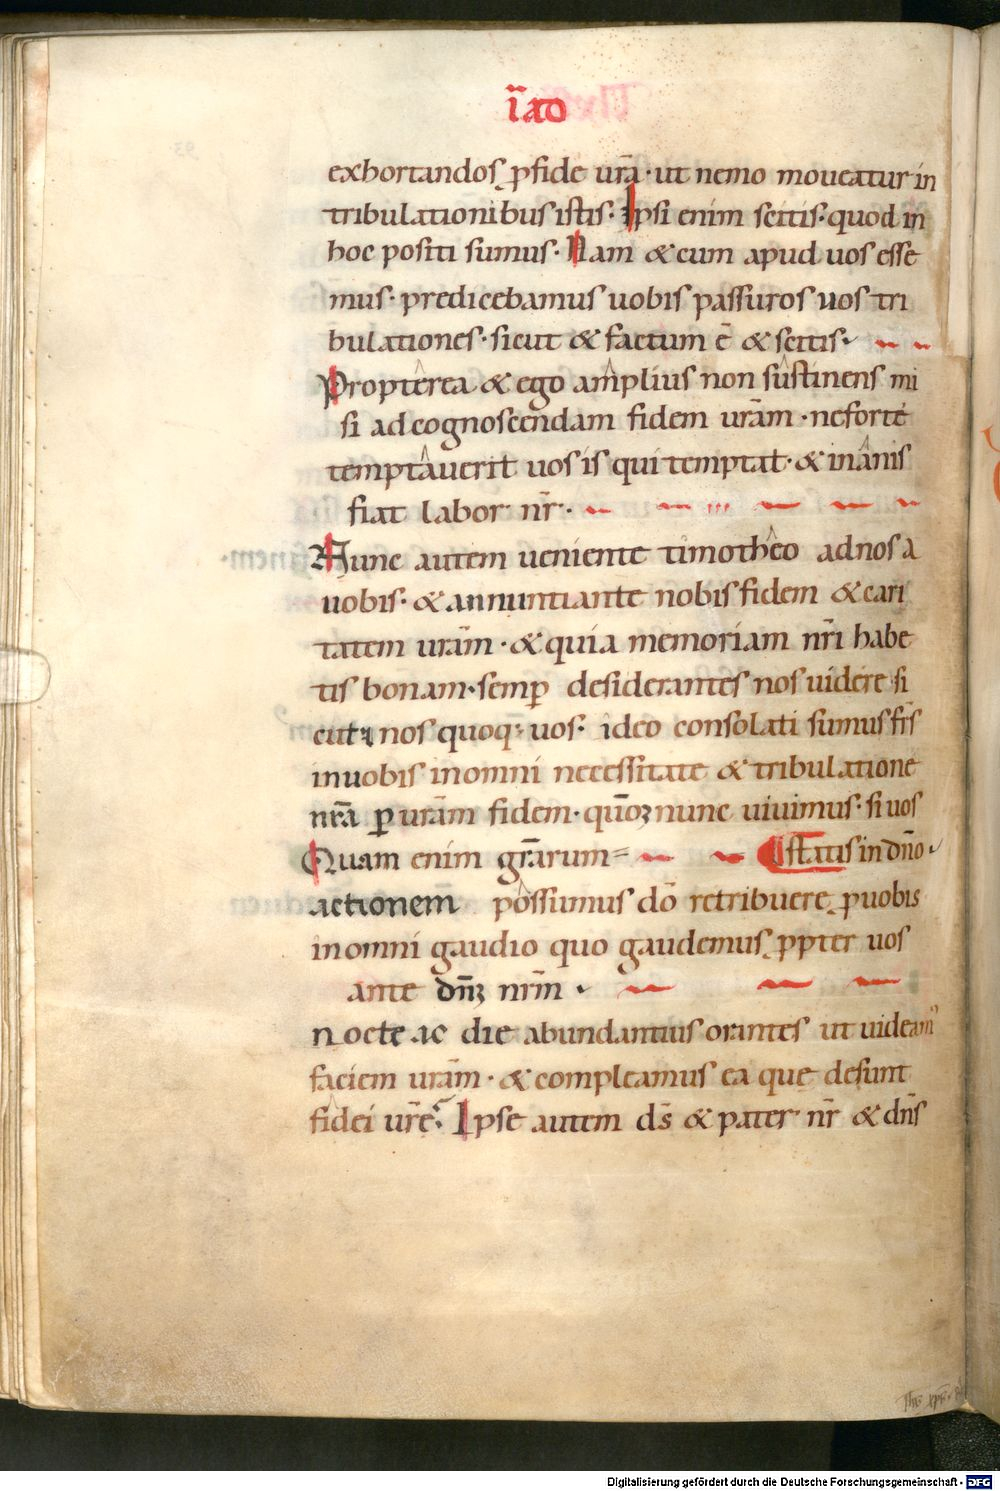 ı̃ ad
exhortandos ꝓ fide ur̃a · ut nemo moueatur in
tribulationibus istis · Ipsi enim scitis · quod in
hoc positi sumus · Nam & cum apud uos esse
mus · predicebamus uobis passuros uos tri
bulationes · sicut & factum ẽ & scitis ·
Propterea & ego amplius non sustinens mi
si ad cognoscendam fidem ur̃am · ne forte
temptauerit uos is qui temptat · & inanis
fiat labor nr̃ ·
Nunc autem ueniente timotheo ad nos a
uobis · & annuntiante nobis fidem & cari
tatem ur̃am · & quia memoriam nr̃i habe
tis bonam · semꝑ desiderantes nos uidere si
cut & nos quoq; uos · ideo consolati sumus fr̃s
in uobis in omni necessitate & tribulatione
nr̃a ꝑ ur̃am fidem · qũoꝫ nunc uiuimus · si uos
statis in dño ·
Quam enim gr̃arum
actionem possumus dõ retribuere ꝓ uobis
in omni gaudio quo gaudemus ꝓpter uos
ante dñꝫ nr̃m ·
nocte ac die abundantius orantes ut uideam᾿
faciem ur̃am · & compleamus ea que desunt
fidei ur̃e · Ipse autem ds̃ & pater nr̃ & dñs
Digitalisierung gefördert durch die Deutsche Forschungsgemeinschaft - DFG